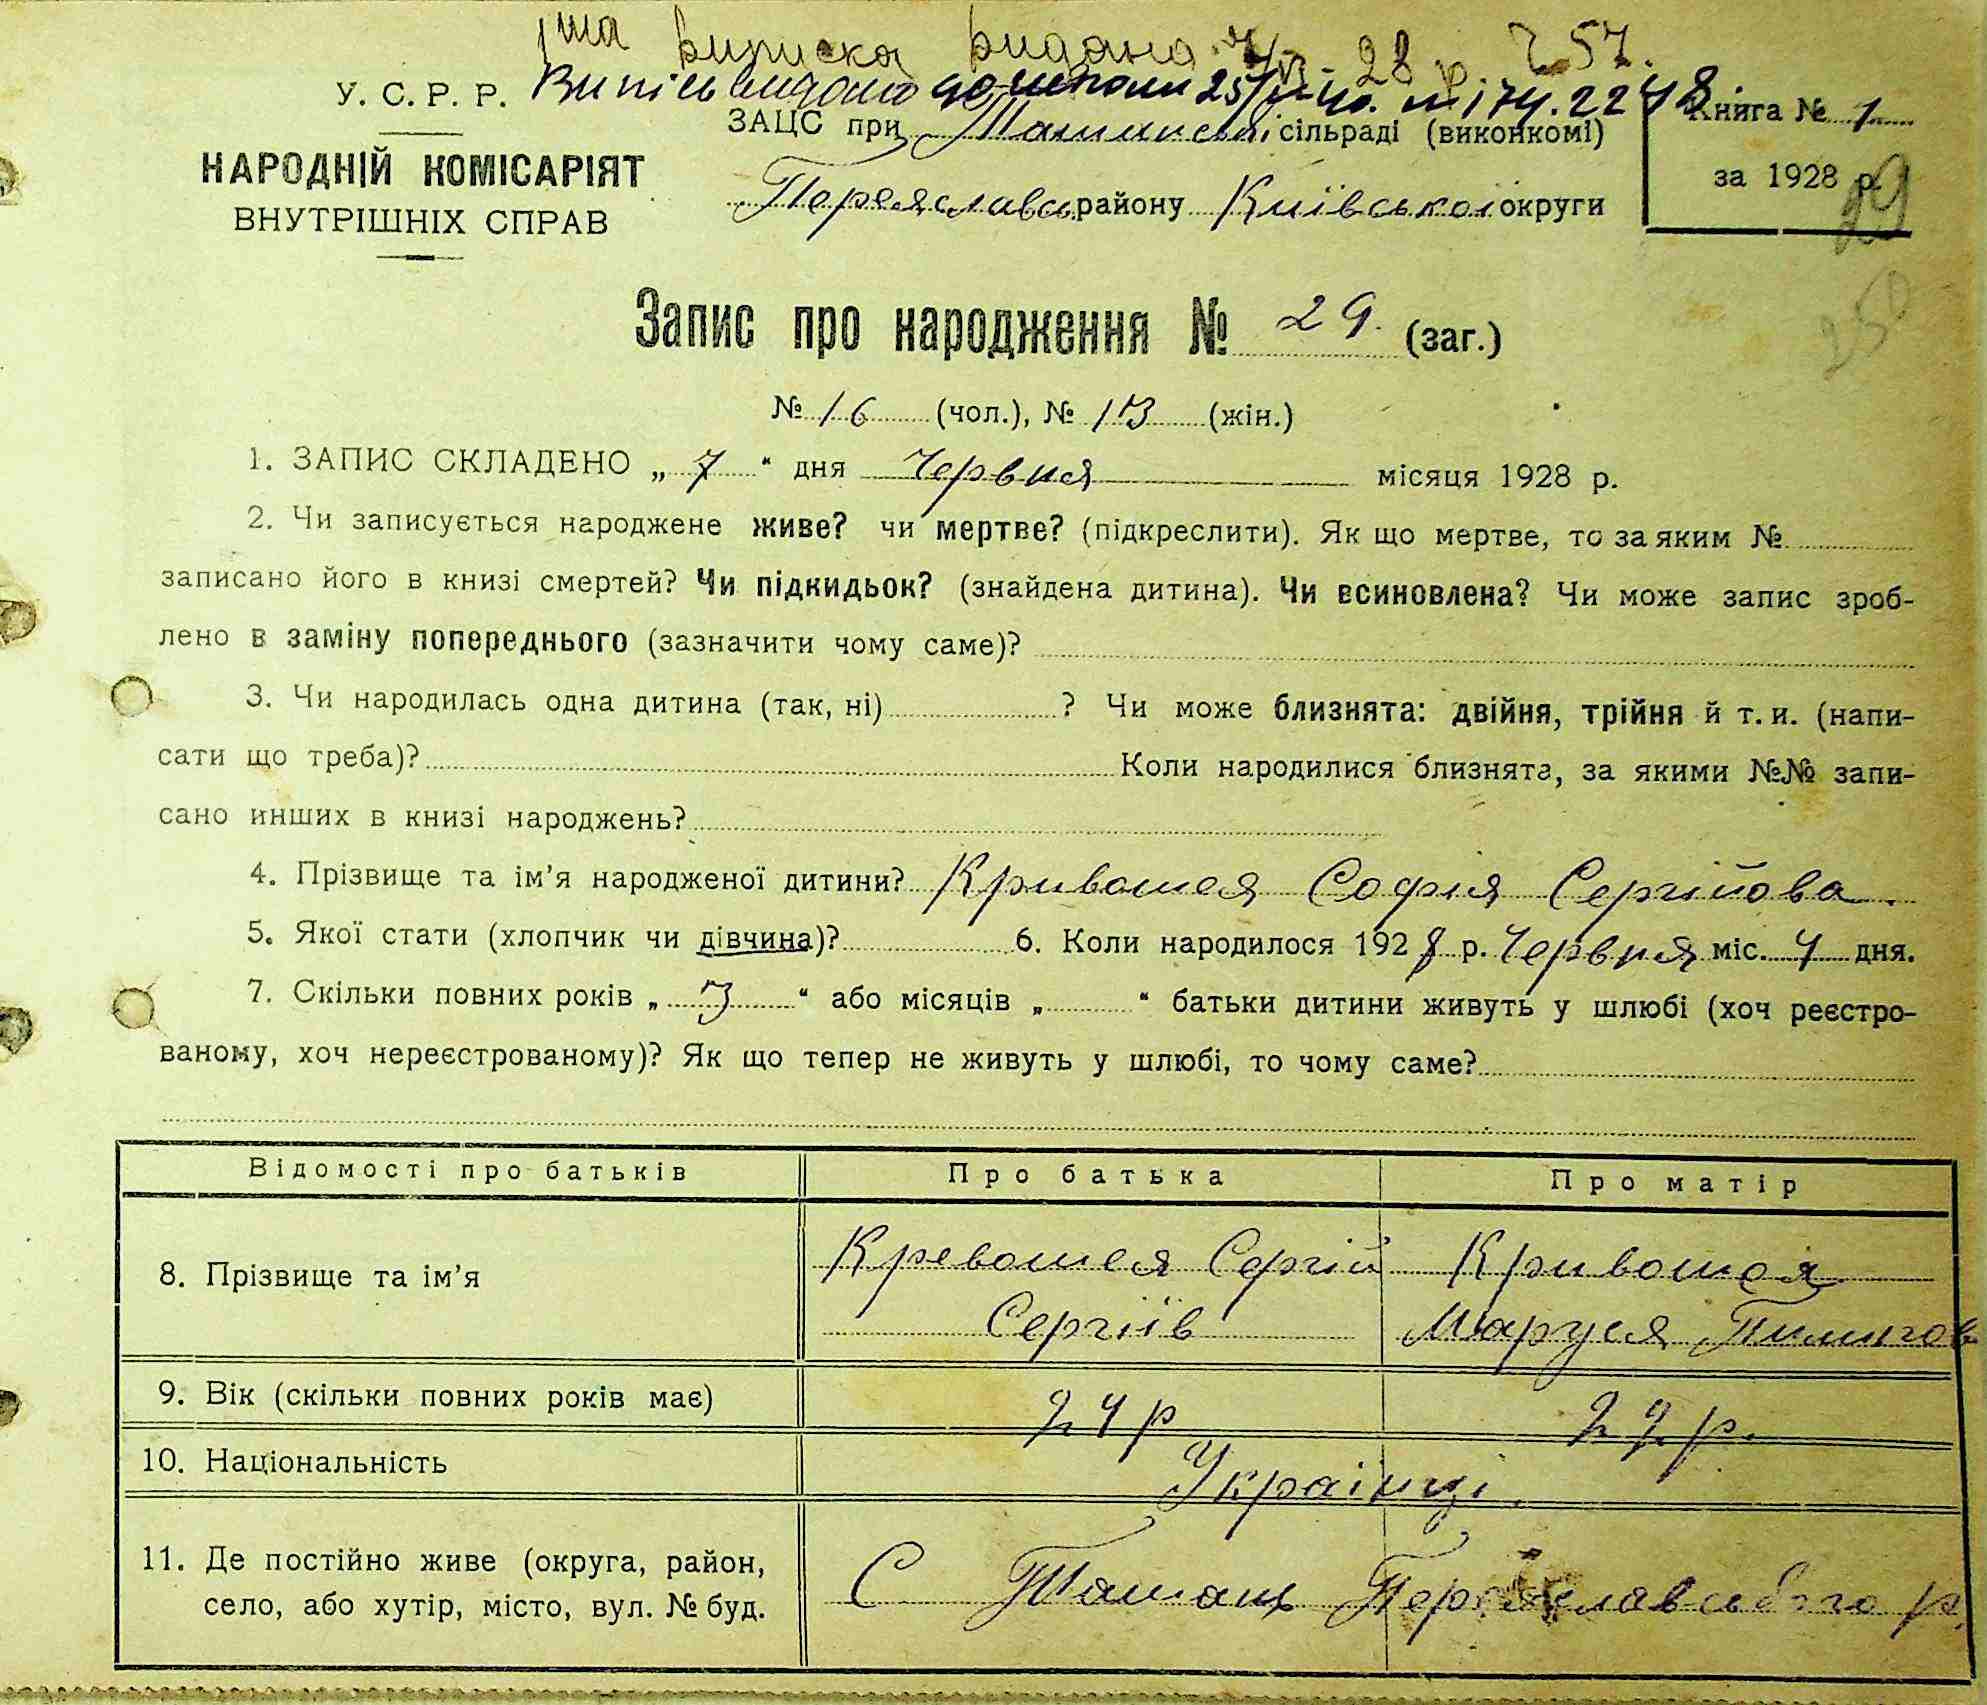 1ша виписка видана 28 р 257.
У. С. Р. Р. Випись видано до школи 25/ 40. 2248.
ЗАЦС при Ташанській сільраді (виконкомі) Книга № 1
НАРОДНІЙ КОМІСАРІЯТ за 1928 р. 29
ВНУТРІШНІХ СПРАВ Переяславськ району Київської округи
Запис про народження № 29. (заг.) 250
№ 16 (чол.), № 13 (жін.)
1. ЗАПИС СКЛАДЕНО „ 7 “ дня Червня місяця 1928 р.
2. Чи записується народжене живе? чи мертве? (підкреслити). Як що мертве, то за яким №
записано його в книзі смертей? Чи підкидьок? (знайдена дитина). Чи всиновлена? Чи може запис зроб-
лено в заміну попереднього (зазначити чому саме)?
3. Чи народилась одна дитина (так, ні) ? Чи може близнята: двійня, трійня й т. и. (напи-
сати що треба)? Коли народилися близнята, за якими №№ запи-
сано инших в книзі народжень?
4. Прізвище та ім’я народженої дитини? Кривошея Софія Сергійова.
5. Якої стати (хлопчик чи дівчина)? 6. Коли народилося 1928 р. Червня міс. 4 дня.
7. Скільки повних років „ 3 “ або місяців „ “ батьки дитини живуть у шлюбі (хоч реєстро-
ваному, хоч нереєстрованому)? Як що тепер не живуть у шлюбі, то чому саме?
Відомості про батьків Про батька Про матір
8. Прізвище та ім’я Кревошея Сергій Кривошея
Сергіїв Маруся
9. Вік (скільки повних років має) 24 р 22 р.
10. Національність Українці.
11. Де постійно живе (округа, район, С Ташань Переяславського р.
село, або хутір, місто, вул. № буд.